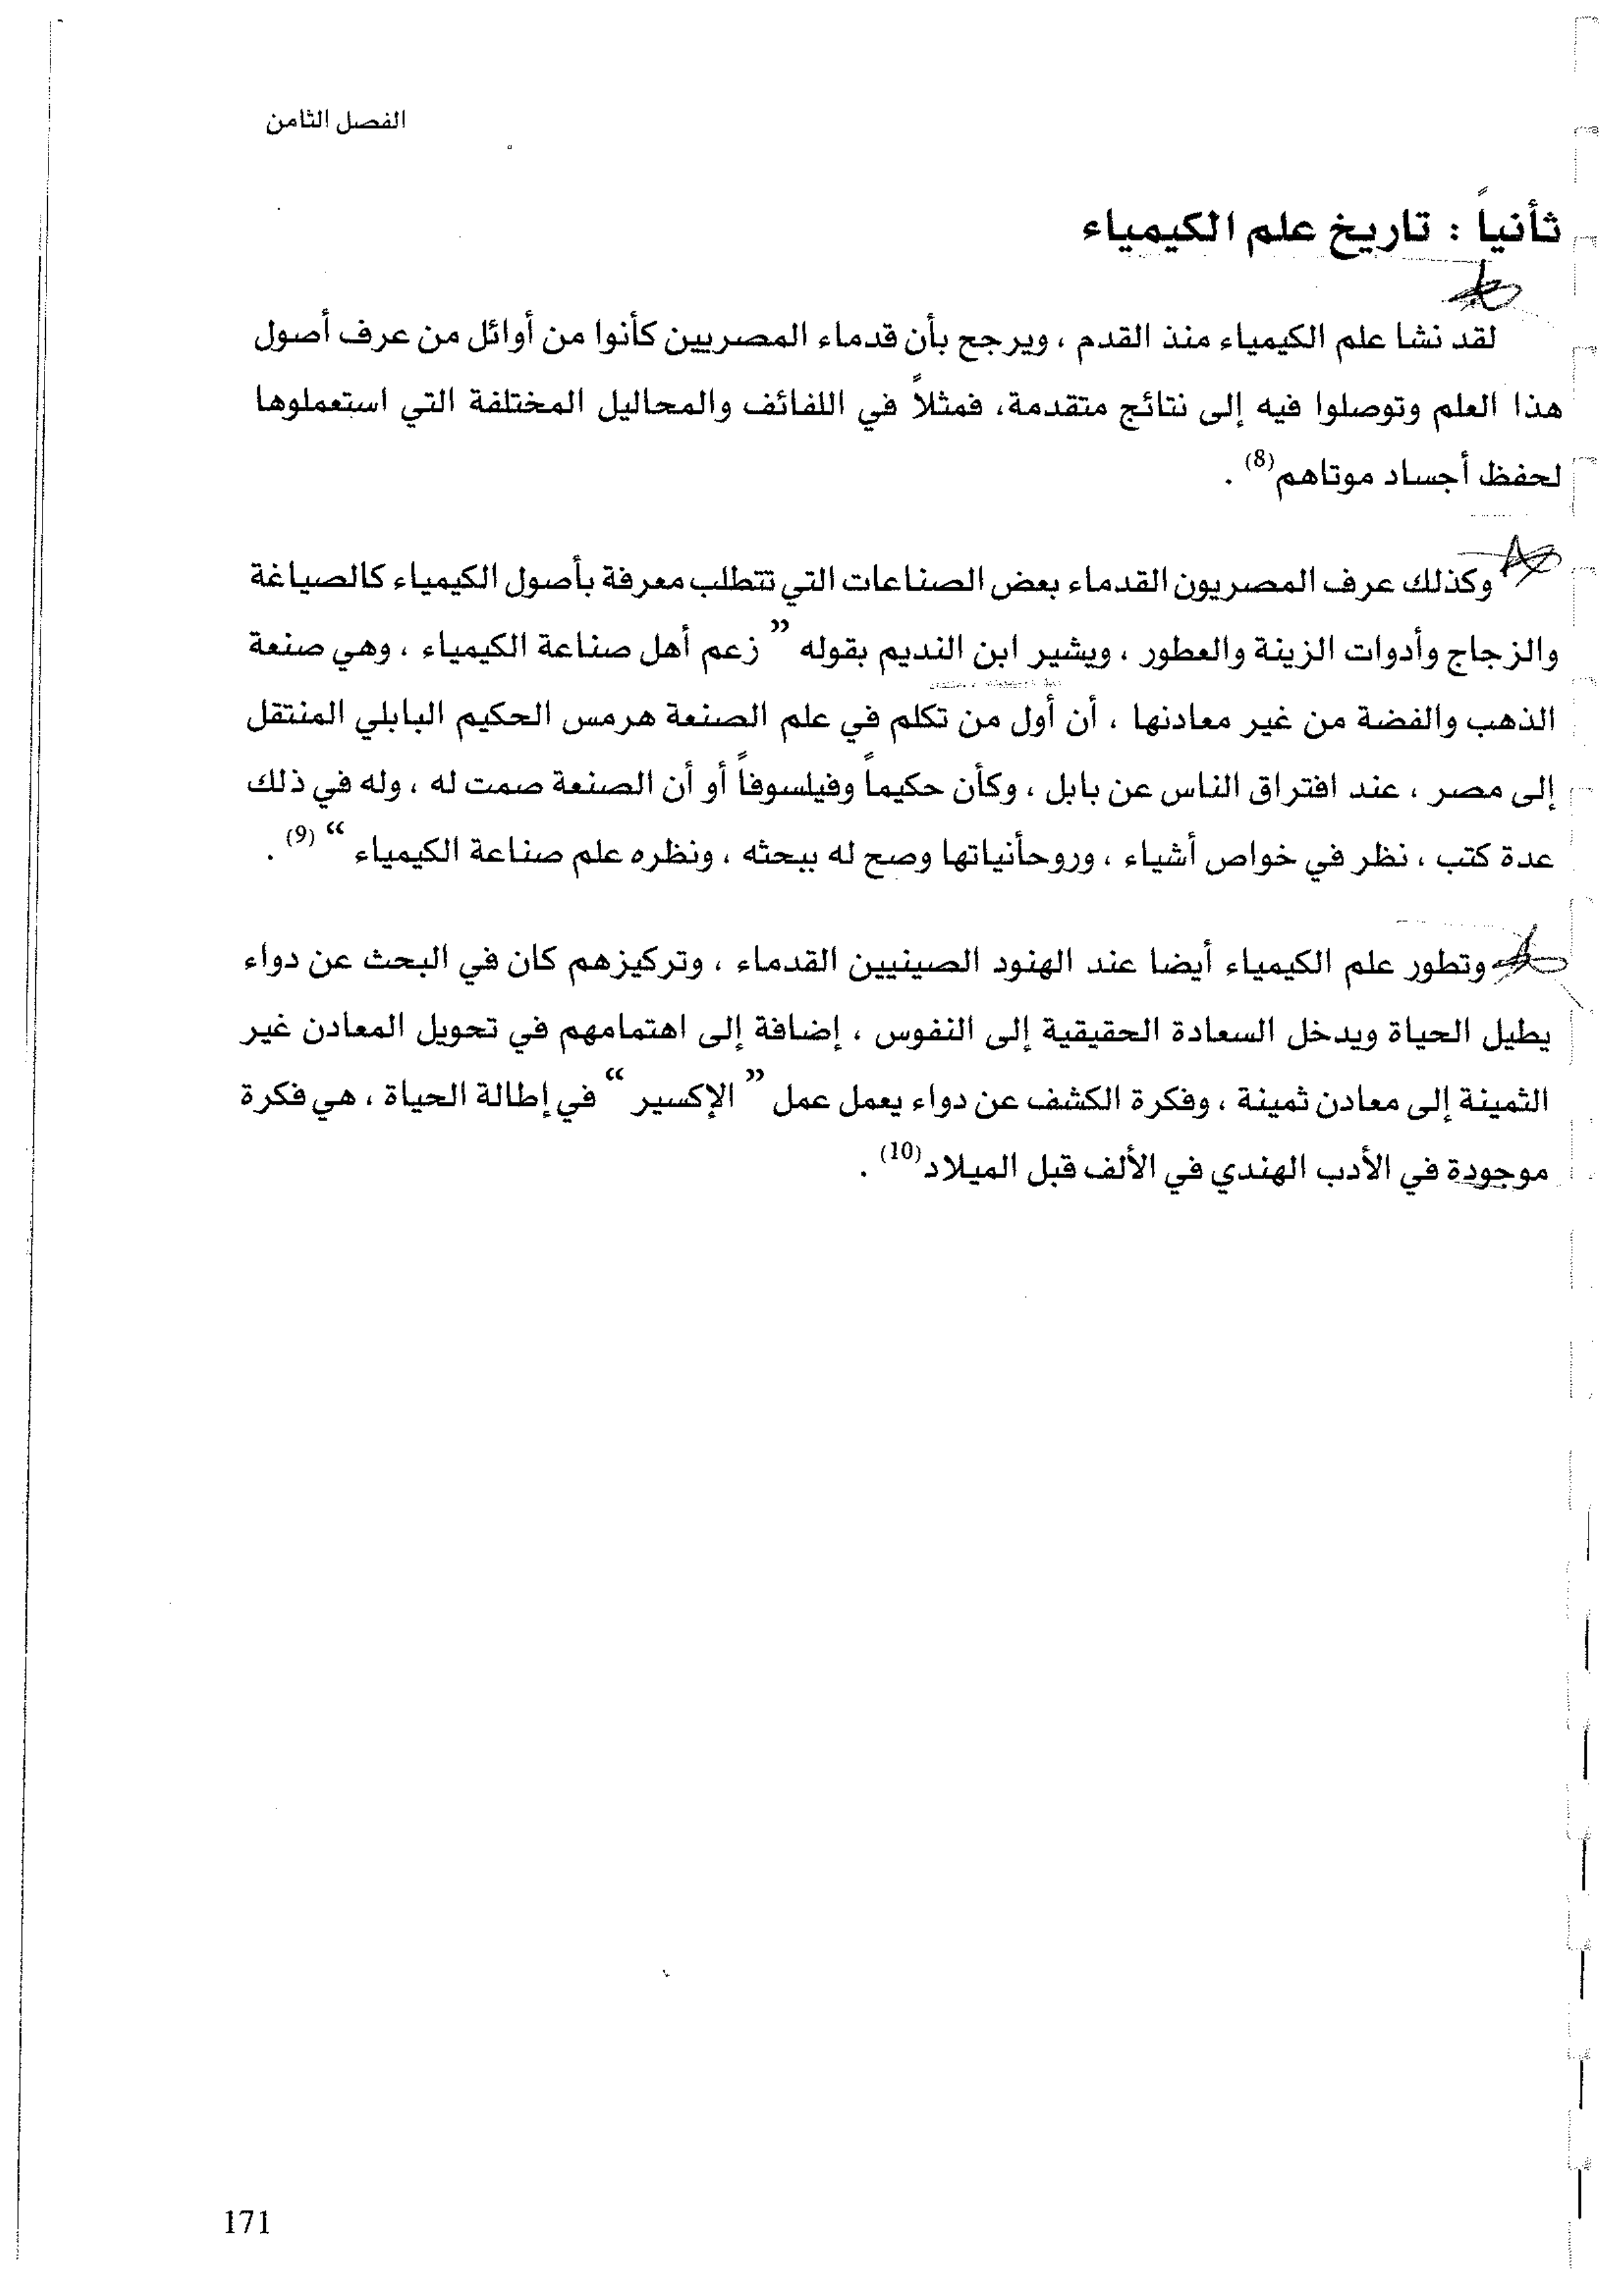 الفصل الثامن
ثأنياً : تاريخ علم الكيمياء
لقد نشا علم الكيمياء منذ القدم ، ويرجح بأن قدماء المصريين كأنوا من أوائل من عرف أصول
هذا العلم وتوصلوا فيه إلى نتائج متقدمة، فمثلاً في اللفائف والمحاليل المختلفة التي استعملوها
لحفظ أجساد موتاهم(8) .
وكذلك عرف المصريون القدماء بعض الصناعات التي تتطلب معرفة بأصول الكيمياء كالصياغة
والزجاج وأدوات الزينة والعطور ، ويشير ابن النديم بقوله ” زعم أهل صناعة الكيمياء ، وهي صنعة
الذهب والفضة من غير معادنها ، أن أول من تكلم في علم الصنعة هرمس الحكيم البابلي المنتقل
إلى مصر ، عند افتراق الناس عن بابل ، وكأن حكيماً وفيلسوفاً أو أن الصنعة صمت له ، وله في ذلك
عدة كتب ، نظر في خواص أشياء ، وروحأنياتها وصح له ببحثه ، ونظره علم صناعة الكيمياء “ (9) .
وتطور علم الكيمياء أيضا عند الهنود الصينيين القدماء ، وتركيزهم كان في البحث عن دواء
يطيل الحياة ويدخل السعادة الحقيقية إلى النفوس ، إضافة إلى اهتمامهم في تحويل المعادن غير
الثمينة إلى معادن ثمينة ، وفكرة الكشف عن دواء يعمل عمل ” الإكسير “ في إطالة الحياة ، هي فكرة
موجودة في الأدب الهندي في الألف قبل الميلاد(10) .
171